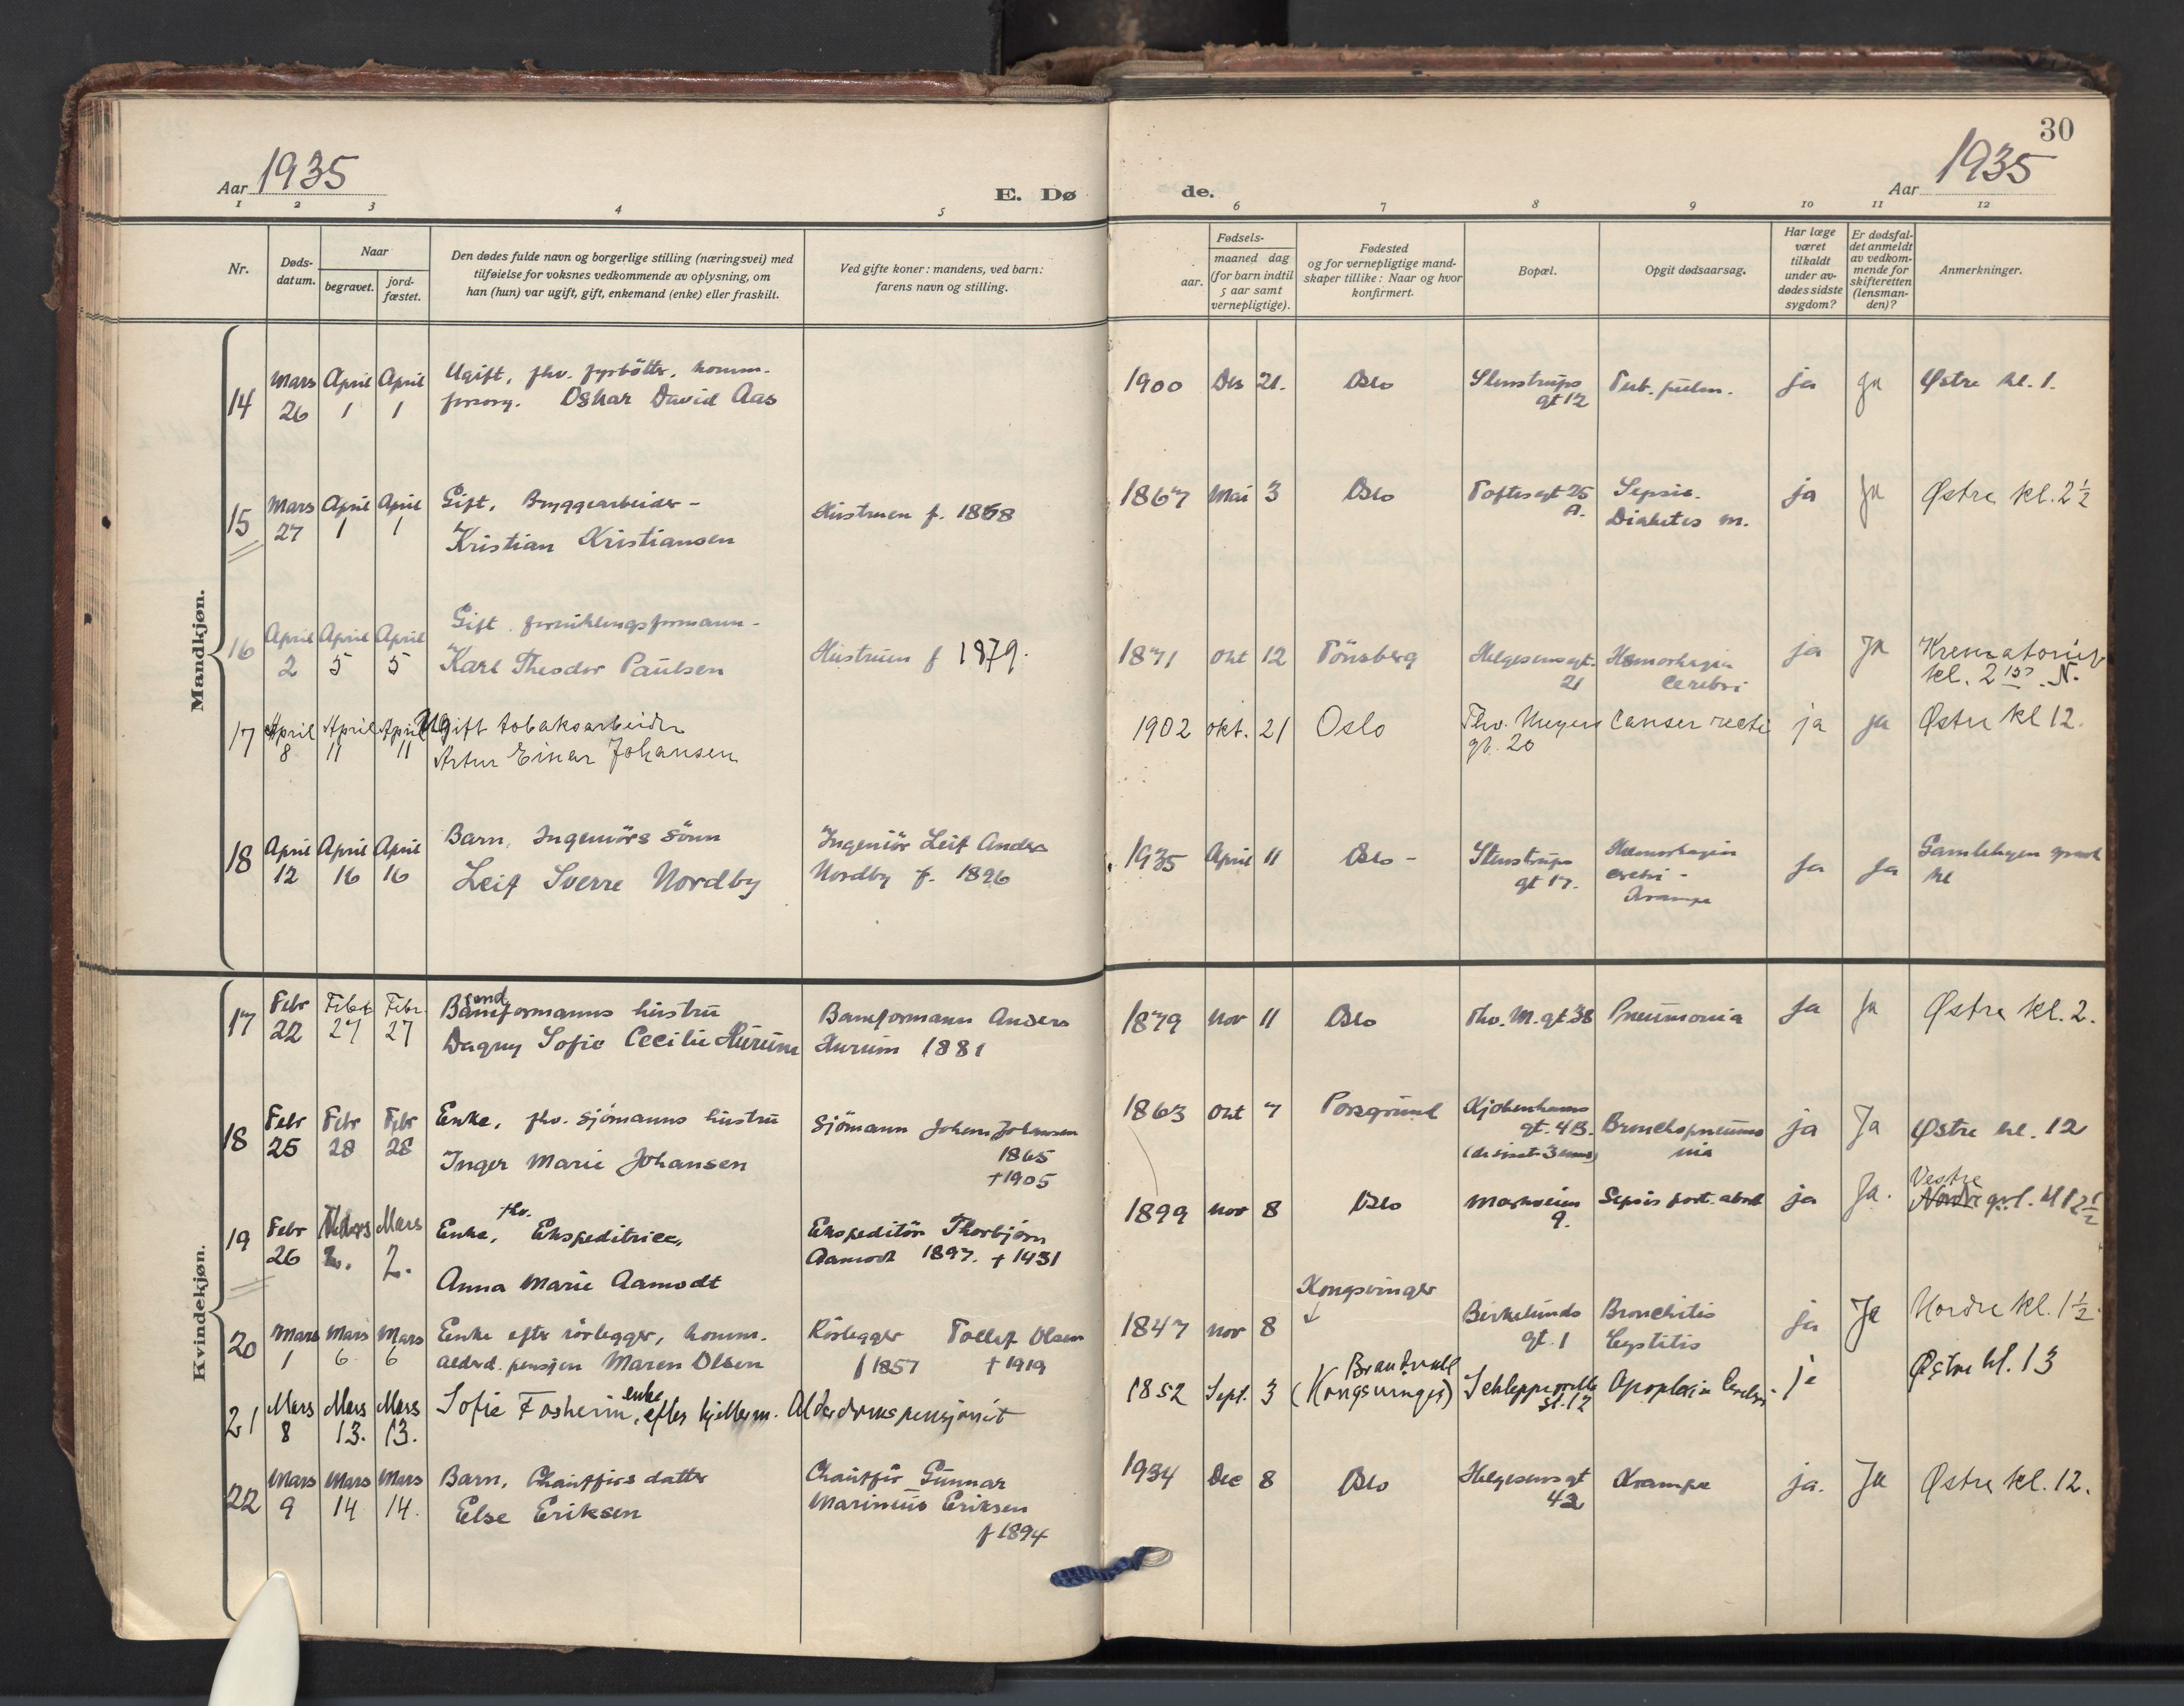 30
Aar 1935
E. Dø
de.
Aar 1935
1 2 3 4 5 6 7 8 9 10 11 12
Nr.
Døds-
datum.
Naar
begravet.
jord-
fæstet.
Den dødes fulde navn og borgerlige stilling (næringsvei) med
tilføielse for voksnes vedkommende av oplysning, om
han (hun) var ugift, gift, enkemand (enke) eller fraskilt.
Ved gifte koner: mandens, ved barn:
farens navn og stilling.
Fødsels-
aar.
maaned dag
(for barn indtil
5 aar samt
vernepligtige).
Fødested
og for vernepligtige mand-
skaper tillike: Naar og hvor
konfirmert.
Bopæl.
Opgit dødsaarsag.
Har læge
været
tilkaldt
under av-
dødes sidste
sygdom?
Er dødsfal-
det anmeldt
av vedkom-
mende for
skifteretten
(lensman-
den)?
Anmerkninger.
Mandkjøn.
14 Mars 26 April 1 April 1
Ugift, fhv. fyrbøter, komm.
forsorg. Oskar David Aas
1900 Des 21. Oslo
Stenstrups
gt 12
Tub. pulm.
ja ja Østre kl. 1.
15 Mars 27 April 1 April 1
Gift, Bryggearbeider -
Kristian Kristiansen
Hustruen f. 1868
1867 Mai 3 Oslo
Toftesgt 25
A.
Sepsis.
Diabetes m.
ja ja Østre kl. 2 1/2
16 April 2 April 5 April 5
Gift. forniklingsformann -
Karl Theodor Paulsen
Hustruen f 1879.
1871 Okt 12 Tönsberg
Helgesensgt.
21
Hæmorhagia
Cerebri
ja Ja
Krematoriet
kl. 2 15 N.
17 April 8 April 11 April 11
Ugift tobaksarbeider
Artur Einar Johansen
1902 okt. 21 Oslo
Thv. Meyers
gt. 20
Canser recti
ja ja Østre kl 12.
18 April 12 April 16 April 16
Barn, Ingeniörs sönn
Leif Sverre Nordby
Ingeniör Leif Anders
Nordby f. 1896
1935 April 11 Oslo -
Stenstrups
gt 17.
Hæmorhagia
cerebri -
Krampe
Ja Ja
Gamlebyen
kl
Kvindekjøn.
17 Febr 22 Febr 27 Febr 27
Baneformanns hustru
Dagny Sofie Cecilie Hurum
Baneformann Anders
Hurum 1881
1879 Nov 11 Oslo Thv. M. gt. 38 Pneumonia
Ja Ja Østre kl. 2.
18 Febr 25 Febr 28 Febr 28
Enke, fhv. sjömanns hustru
Inger Marie Johansen
Sjömann Johan Johansen
1865
+1905
1863 Okt 7 Porsgrund
Kjøbenhavns
gt. 4 B.
Bronchopneumo
nia
ja Ja Østre kl. 12
19 Febr 26 Mars 2. Mars 2.
Enke, fhv. Ekspeditrice,
Anna Marie Aamodt
Ekspeditör Thorbjörn
Aamodt 1897. + 1931
1899 Nov 8 Oslo
Markveien
9.
Sepsis post. abort
ja Ja.
Vestre
Nordre grl. kl 12 1/2
20 Mars 1 Mars 6 Mars 6
Enke efter rörlegger, komm.
alderd. pensjon Maren Olsen
Rörlegger Tollef Olsen
f 1857 + 1919
1847 Nov 8 Kongsvinger
Birkelunds
gt. 1
Bronchitis
Cystitis
ja Ja Nordre kl. 1 1/2.
21 Mars 8 Mars 13. Mars 13.
Sofie Fosheim, enke efter kjellerm. Alderdomspensjonist
1852 Sept. 3
Brandvall
(Kongsvinger)
Schleppegrells
gt. 12
Apoplexia Cerebri.
ja Østre kl. 13
22 Mars 9 Mars 14 Mars 14.
Barn, Chaufförs datter
Else Eriksen
Chaufför Gunnar
Marinius Eriksen
f 1894
1934 Dec 8 Oslo
Helgesens gt
42
Krampe
ja. Ja Østre kl. 12.